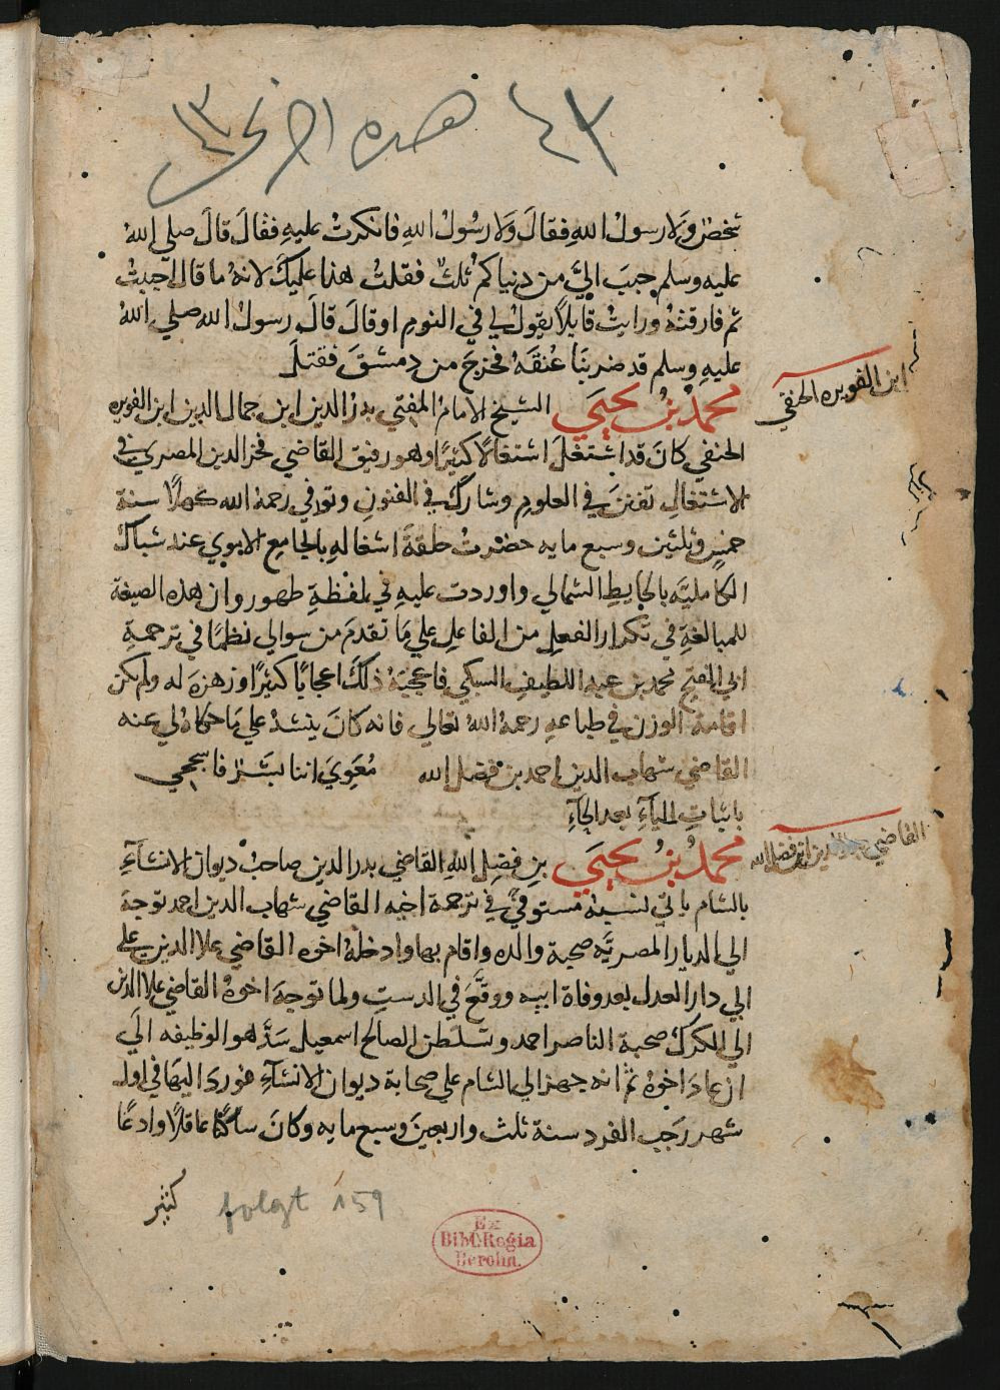 ٤٣
شخصٌ ولا رسولُ الله فقالَ ولا رسُولُ الله فانكرتُ عليهِ فقالَ قالَ صلي اللهُ
عليه وسلم حببَ اليَّ من دنياكمُ ثلثٌ فقلتُ هذا عليكَ لانهُ ما قال احببتُ
ثم فارقتهُ ورايتُ قايلاً يقولُ لي في النومِ او قالَ قالَ رسولُ الله صلي اللهُ
عليهِ وسلم قد ضربنَا عُنقَهُ فخرجَ من دمشقَ فقتلَ
ابن الفويره الحنفي
محمدُ بنُ يحيَي الشيخ الامامُ المفتي بدر الدين ابن جمال الدين ابن الفويره
الحنفي كانَ قد اشتغلَ اشتغالاً كثيرًا وهو رفيق القاضي فخر الدين المصري في
الاشتغالِ تفننَ في العلومِ وشاركَ في الفنونِ وتوفي رحمهُ الله كهلاً سنة
خمسٍ وثلثين وسبع مايه حضرتُ حلقةَ اشغالهِ بالجامع الاموي عند شباك
الكامليَّه بالحايطِ الشمالي واوردت عليهِ في لفظةِ طهور وان هذه الصيغة
للمبالغةِ في تكرارِ الفعلِ من الفاعلِ علي مَا تقدمَ من سوالي نظمًا في ترجمةِ
ابي الفتح محمد بن عبد اللطيف السبكي فاعجبهُ ذلكَ اعجابًا كثيرًا وزهزهَ له ولم يكن
اقامة الوزن في طباعهِ رحمهُ اللهُ تعالي فانه كانَ ينشدُ علي مَا حكاهُ لي عنه
القاضي شهاب الدين احمد بن فضل الله مُعَوِيَ اننا بَشَرٌ فاسجحي
باثباتِ الياءِ بعد الحآءِ
القاضي بدر الدين ابن فضل الله
محمدُ بنُ يحيَي بنِ فضلِ اللهِ القاضي بدر الدين صاحبُ ديوان الانشآءِ
بالشام ياتي نسبهُ مستوفيً في ترجمة اخيه القاضي شهاب الدين احمد توجهَ
الي الديار المصريَّه صحبة والده واقام بها وادخلهُ اخوه القاضي علا الدين علي
الي دار العدل بعد وفاة ابيه ووقَّعَ في الدستِ ولما توجهَ اخوهُ القاضي علا الدين
الي الكرك صحبة الناصر احمد وتسلطن الصالح اسمعيل سَدَّ هو الوظيفه الَي
ان عادَ اخوهُ ثم انه جهز الي الشام علي صحابة ديوان الانشآءِ فورد اليهَا في اول
شهر رَجب الفرد سنة ثلث واربعينَ وسبع مايه وكانَ ساكنًا عاقلاً وادعًا
كثير
folgt 159
Ex
Bibl. Regia
Berolin.